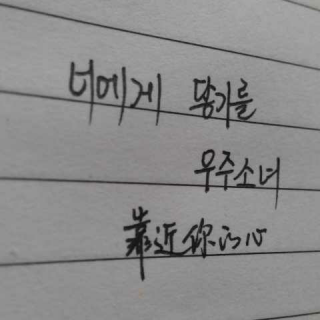 너에게 닿기를
우주소녀
靠近你的心